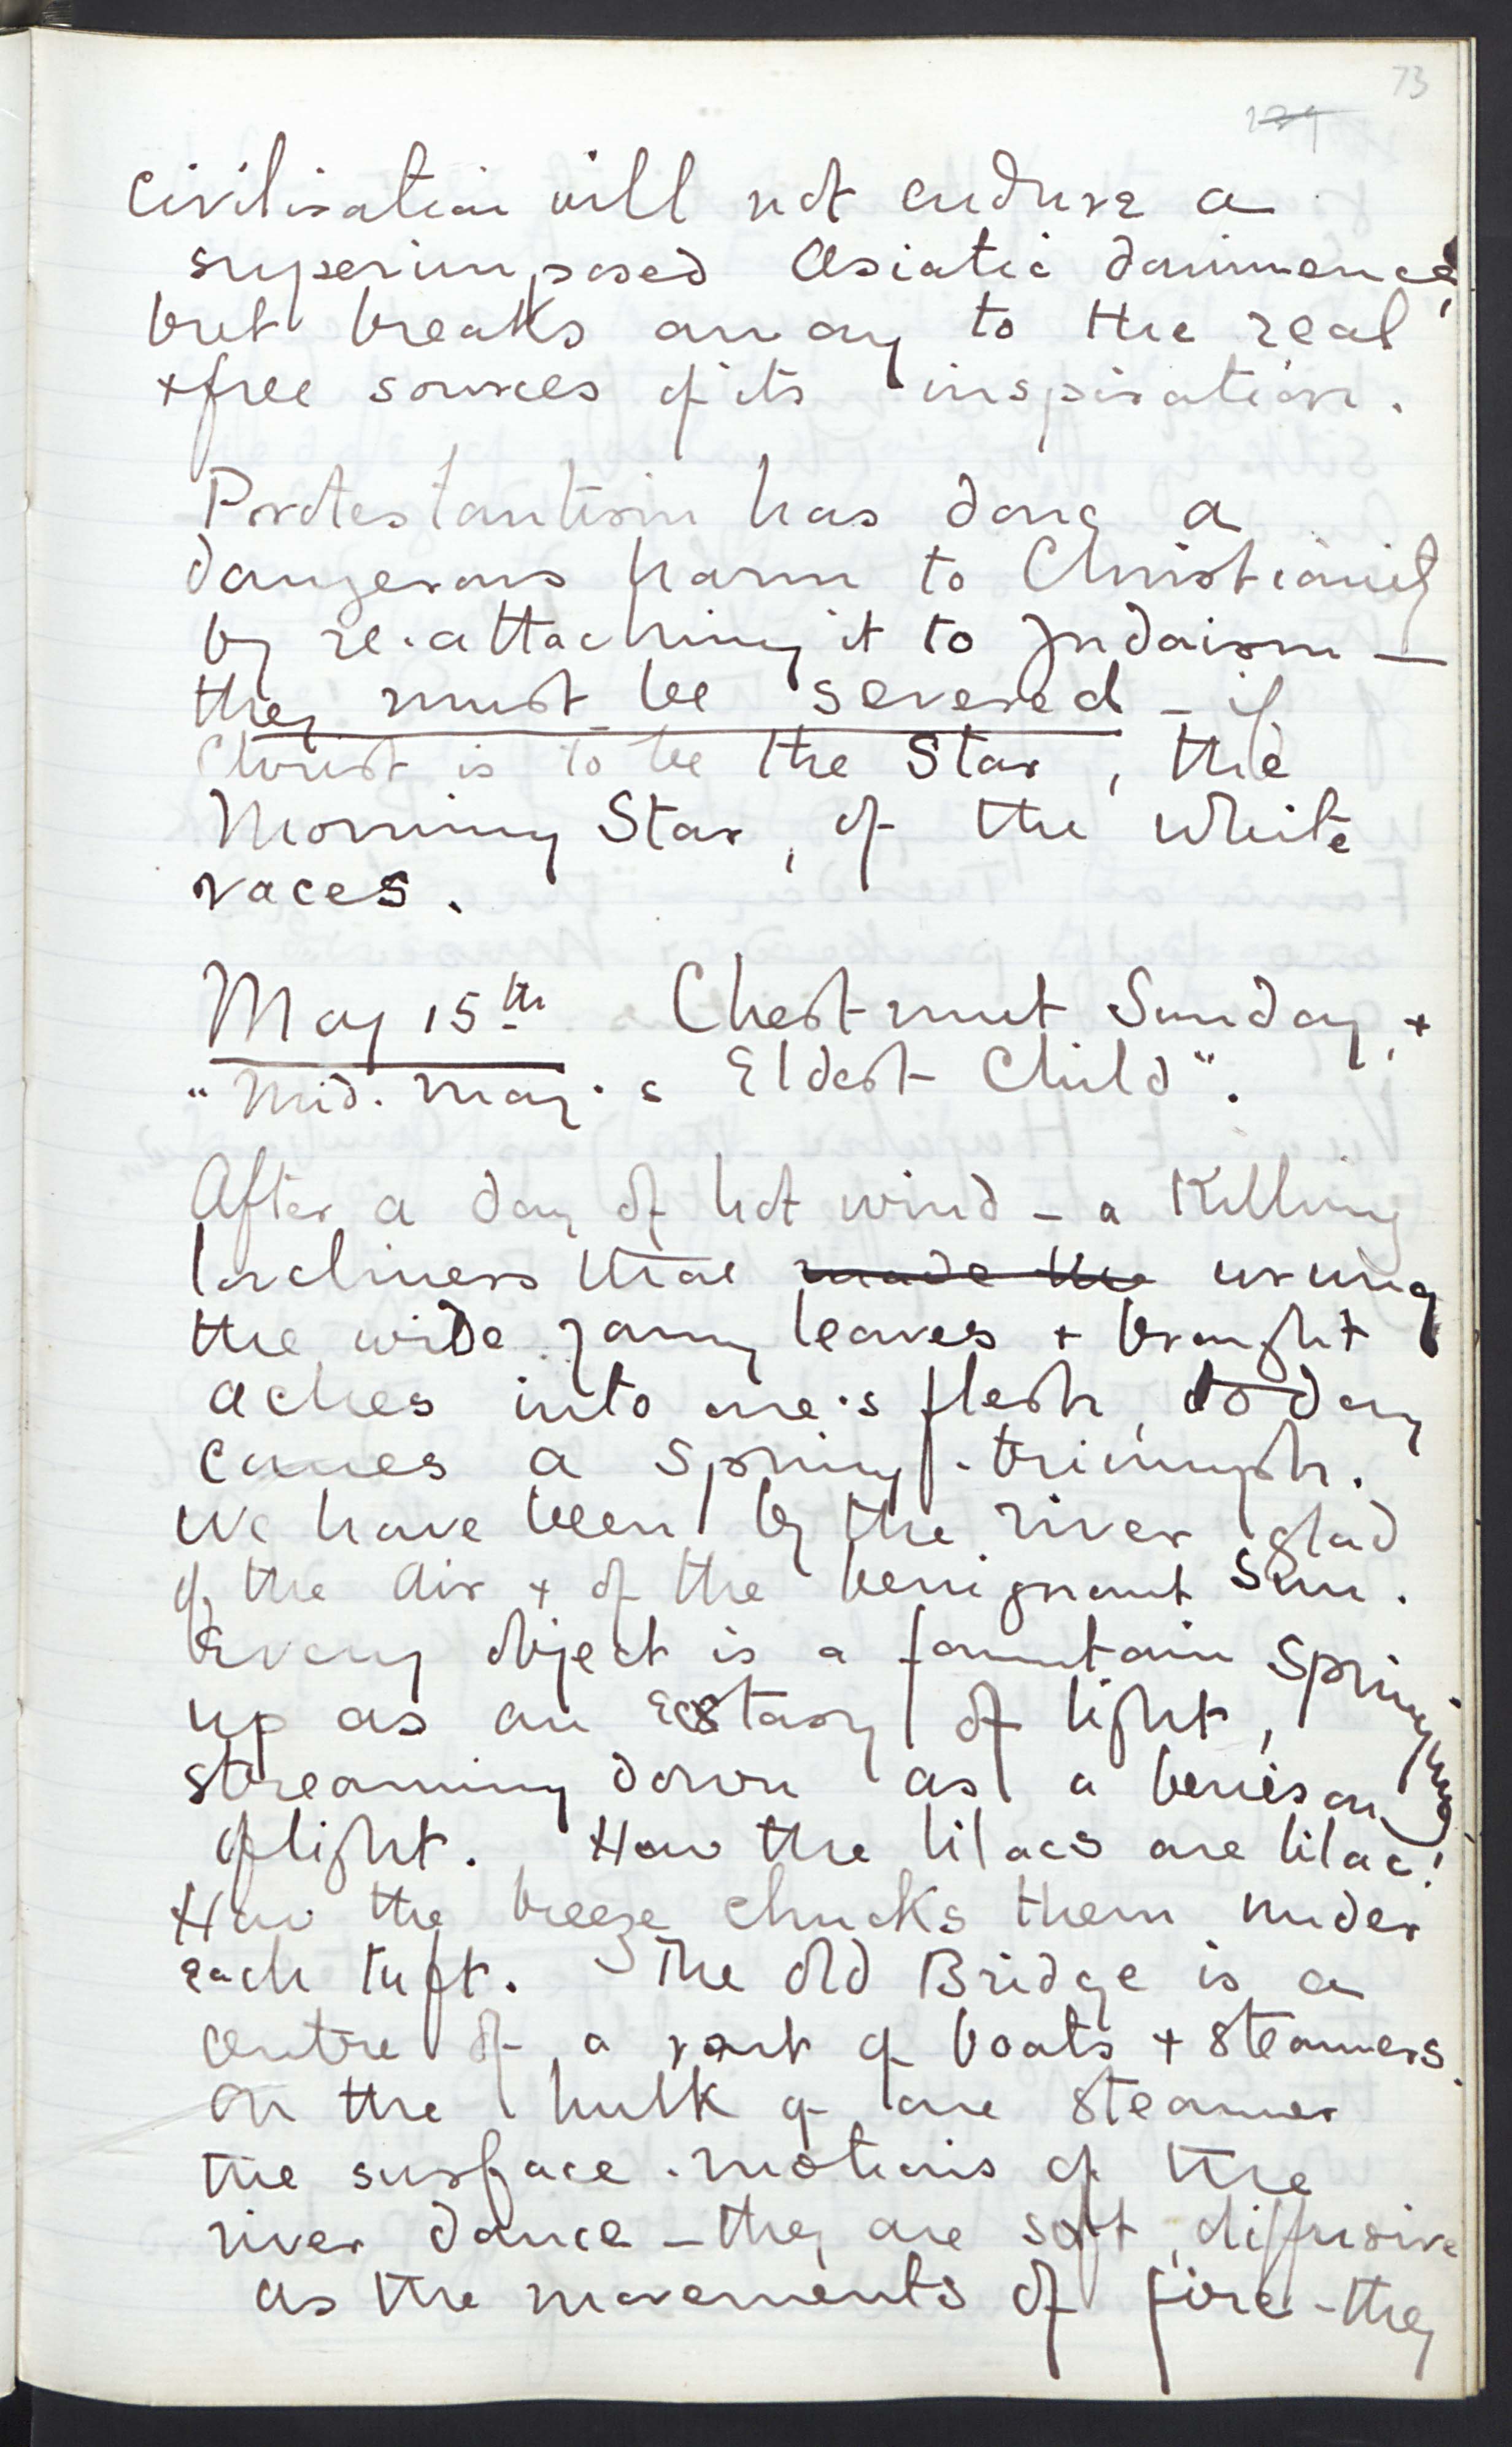 73
civilisation will not endure a
superimposed Asiatic dominence,
but breaks away to the real
+ free sources of its inspiration.
Protestantism has done a
dangerous harm to Christianity
by re-attaching it to Judaism —
they must be severed – if
Christ is to be the Star, the
Morning Star, of the white
races.
May 15th Chestnut Sunday, +
"Mid-May's Eldest Child".
After a day of hot wind – a killing
loveliness that made the wrung
the wide young leaves + brought
aches into one's flesh, today
comes a Spring-triumph.
We have been by the river glad
of the air + of the benignant Sun.
Every object is a fountain springing
up as an Ecstasy of light,
streaming down as a benison
of light. How the lilacs are lilac!
How the breeze chucks them under
each tuft. The Old Bridge is a
centre of a rout of boats + steamers.
On the hulk of one steamer
the surface-motions of the
river dance – they are soft, diffusive
as the movements of fire – they